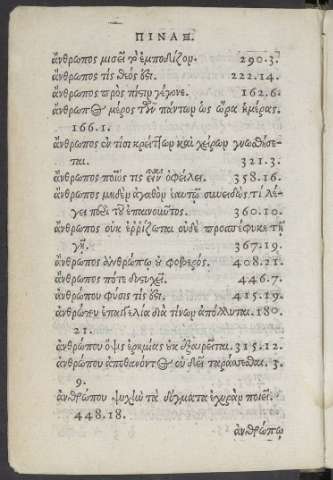 ΠΙΝΑΞ.
ἄνθρωπος μισεῖ τὸ ἐμποδίζον. 290.3.
ἄνθρωπος τίς θεός ὅτι. 222.14.
ἄνθρωπος πρὸς τί γέγονε. 162.6.
ἄνθρωπος μέρος τῶν πάντων ὡς ὥρα ἡμέρας.
166.1.
ἄνθρωπος ἐν τίσι κρείττων καὶ χείρων γνωθήσε-
ται. 321.3.
ἄνθρωπος ποῖός τις εἶναι ὀφείλει. 358.16.
ἄνθρωπος μηδὲν ἀγαθὸν ἑαυτῷ συνειδὼς τί λέ-
γει περὶ τοῦ ἐπαινοῦντος. 360.10.
ἄνθρωπος οὐκ ἐρρίζωται οὐδὲ προσπέφυκε τῇ
γῇ. 367.19.
ἄνθρωπος ἀνθρώπῳ οὐ φοβερός. 408.21.
ἄνθρωπος πότε δυτυχεῖ. 446.7.
ἀνθρώπου φύσις τίς ὅτι. 415.19.
ἀνθρώπου ἐπαγγελία διὰ τίνων ἀπόλλυται. 180.
21.
ἀνθρώπου ὄψις ἐρημίας οὐκ ἐξαιρεῖται. 315.12.
ἀνθρώπου ἀποθανόντος οὐ δεῖ ταράσσεσθαι. 3.
9.
ἀνθρώπου ψυχὴν τὰ δόγματα ἐχυρὰν ποιεῖ.
448.18.
ἀνθρώπῳ